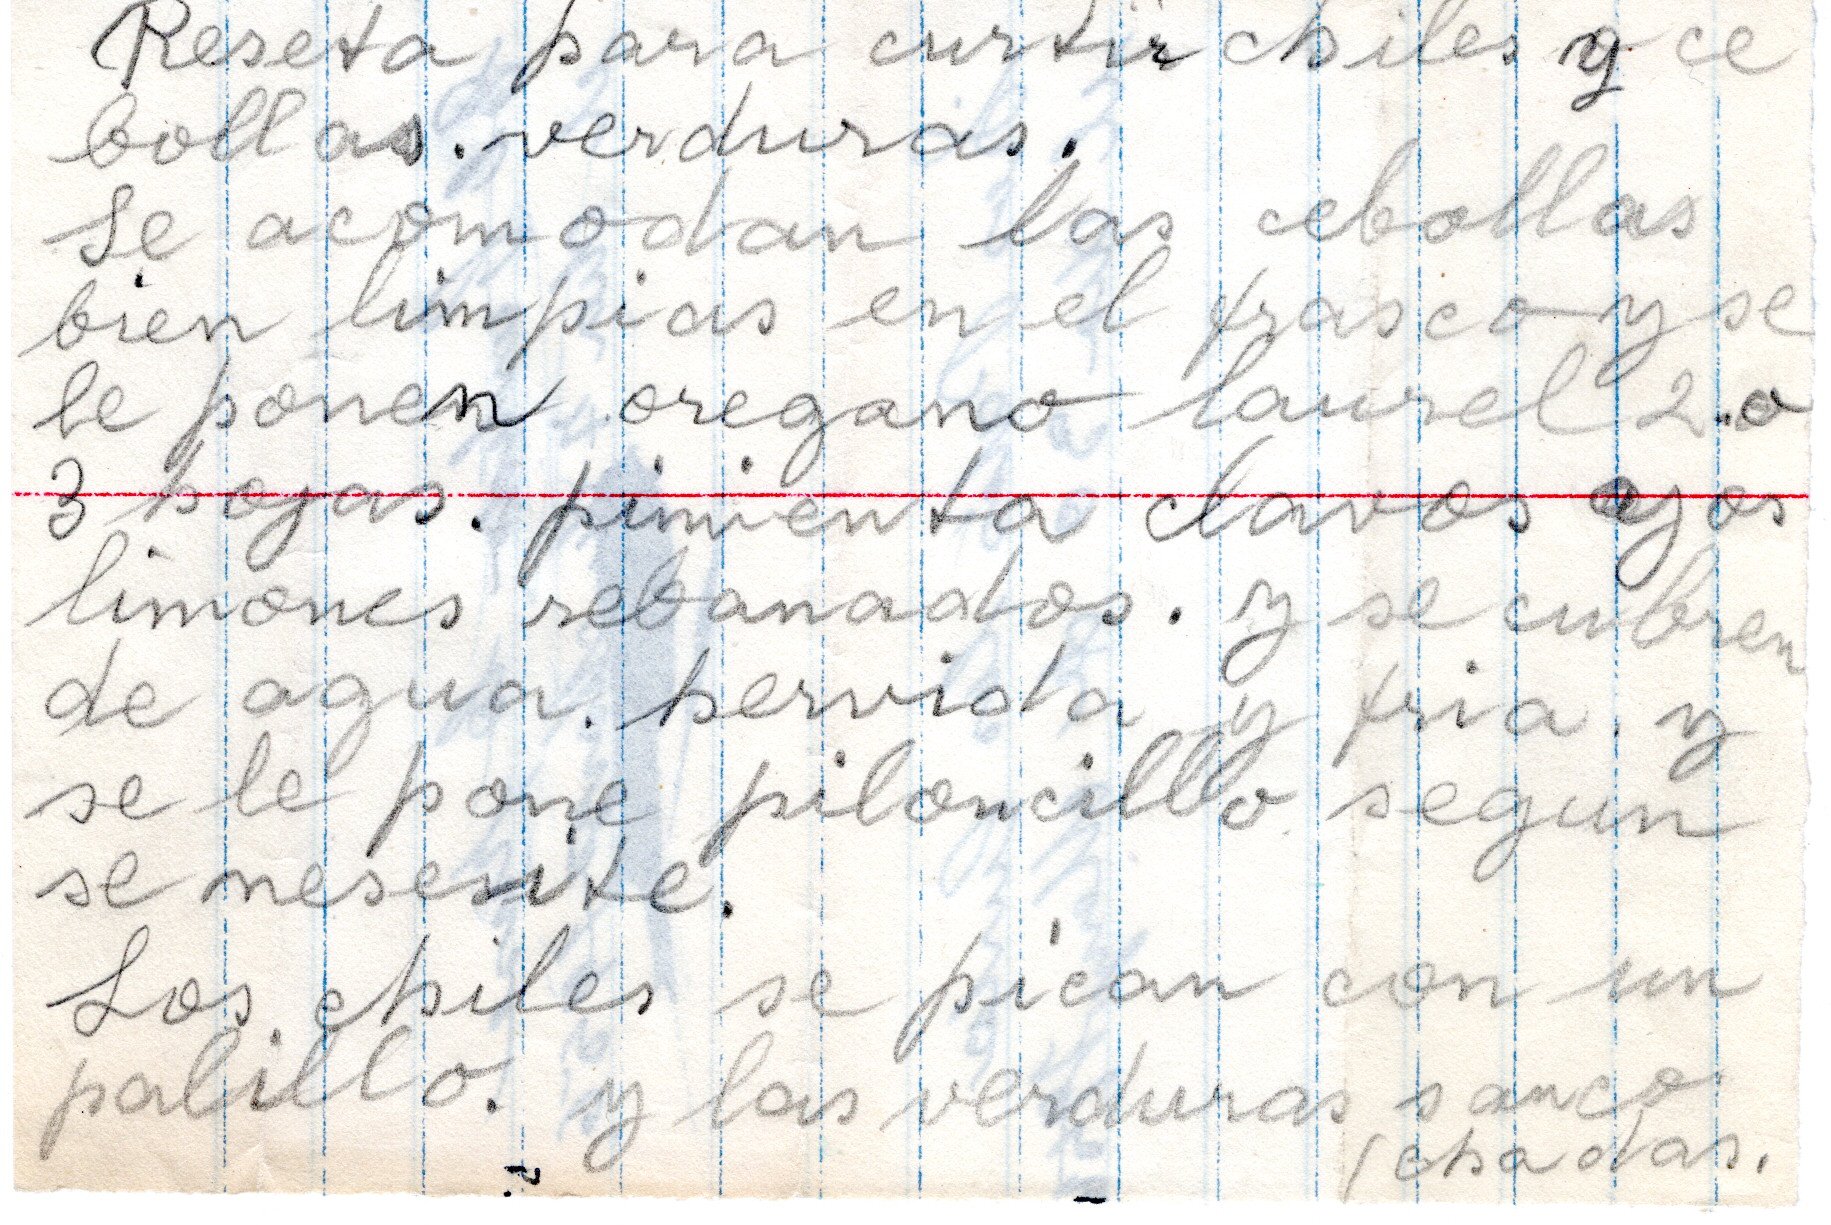 Reseta para curtir chiles y ce
bollas. verduras.
Se acomodan las cebollas
bien limpias en el frasco y se
le ponen oregano laurel 2 o
3 hojas. pimienta clavos ajos
limones rebanados. y se cubren
de agua. hervida y fria. y
se le pone piloncillo segun
se nesesite.
Los chiles se pican con un
palillo. y las verduras sanco
chadas.